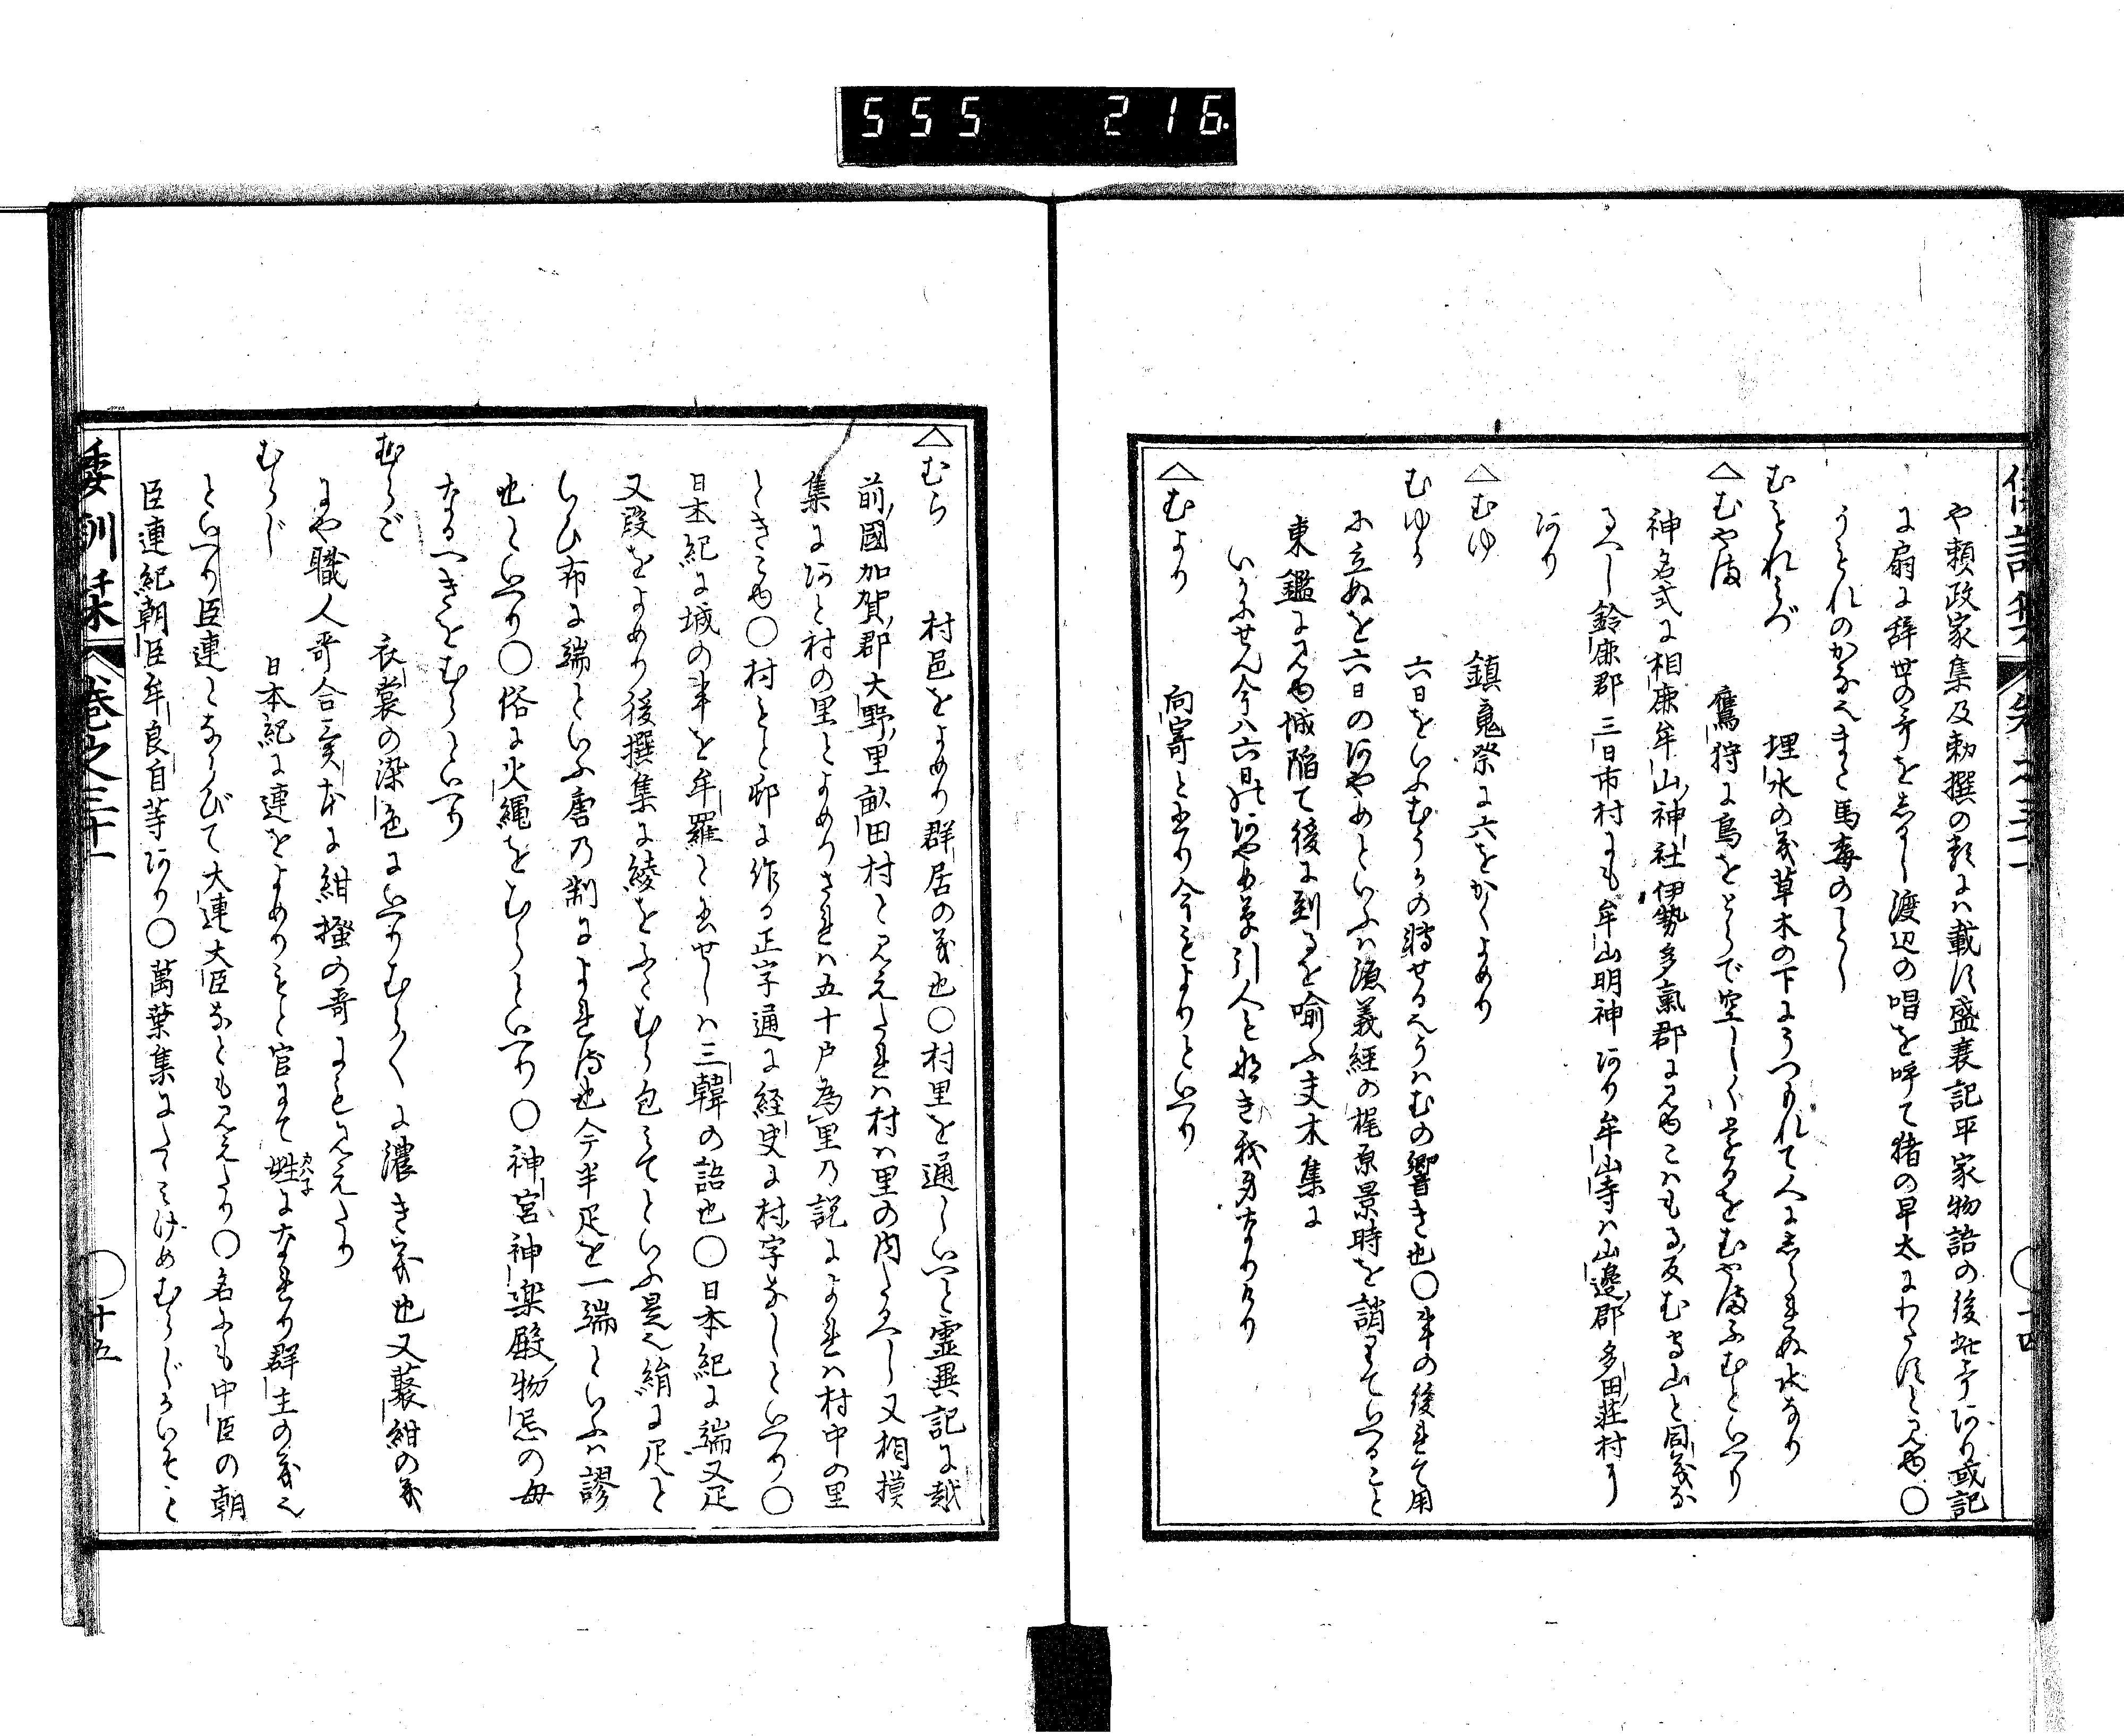 555 216.
や頼政家集及勅撰の類には載す盛衰記平家物語の後此事あり或記
に扇に辞世の哥をしるし渡辺の唱を呼て猪の早太にわたすと見ゆ○
うもれのかなへまた馬毒のこと
むもれみづ 埋水の義草木の下にうつもれて人にしられぬ水なり
△むやま 鷹狩に鳥をとらで空しくかへるをむやまふむといへり
神名式に相鹿牟山神社伊勢多氣郡に見ゆこはもる反むもる山と同義な
るへし鈴鹿郡三日市村にも牟山明神あり牟山寺は山邊郡多田荘村に
あり
△むゆ 鎮魂祭に六をかくよめり
むゆか 六日をいふむうかの轉せるへうはむの響き也○事の後れて用
に立ぬを六日のあやめといふは源義經の梶原景時を誚りていへること
東鑑に見ゆ城陥て後に到るを喩ふ夫木集に
いかにせん今は六日のあやめ草引人もなき我身なりけり
△むより 向寄と書り今もよりといへり
△むら 村邑をよめり群居の義也○村里を通しいへと霊異記に越
前國加賀郡大野里畝田村と見えたれは村は里の内なるへし又相摸
集にあと村の里とよめりされは五十戸為里の説によれは村中の里
ときこゆ○村もと邨に作る正字通に経史に村字なしといへり○
日本紀に城の事を牟羅と書せしは三韓の語也○日本紀に端又疋
又段をよめり後撰集に綾をふたむら包みてといふ是也絹に疋と
いひ布に端といふ唐の制によれる也今半疋を一端といふは謬
也といへり○俗に火縄をむらといへり○神宮神楽殿物忌の毋
なるへきをむらといへり
むらご 衣裳の染色にいへりむらむらに濃き義也又聚紺の義
にや職人哥合異本に紺掻の哥にもみえたり
むらじ 日本紀に連をよめりもと官にて姓になれり群主の義也
といへり臣連とならびて大連大臣なとも見えたり○名にも中臣の朝
臣連紀朝臣牟良自等あり○萬葉集にたてみけめむらじかいそと
倭訓栞 巻之三十一 ○十五